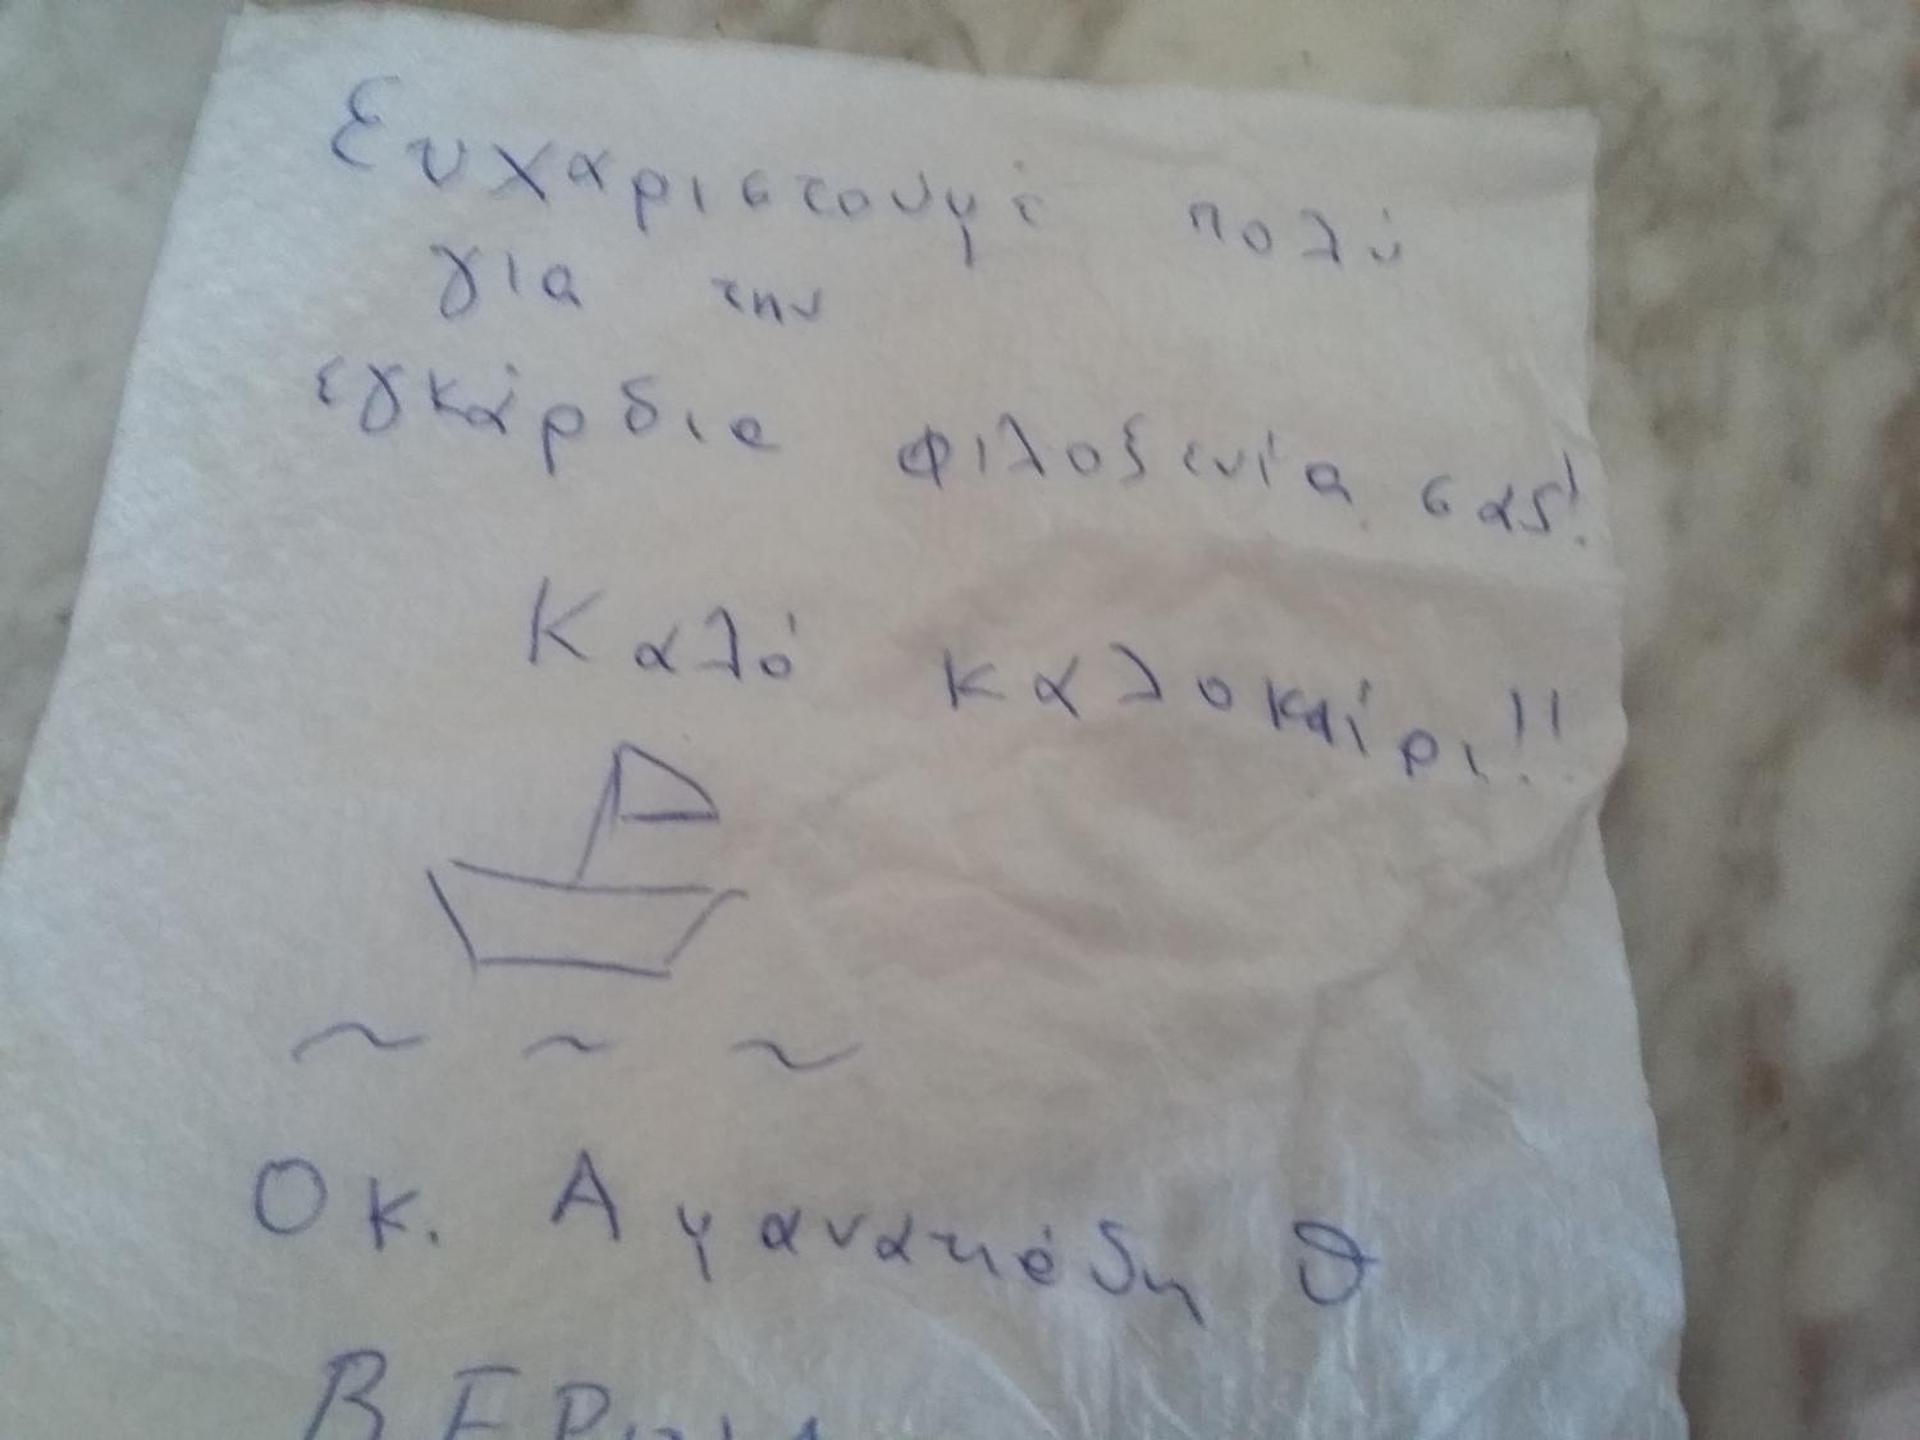 Ευχαριστουμε πολύ
για την
εγκάρδια φιλοξενία σας!
Καλό καλοκαίρι!!
Οκ. Αμανατιάδη Θ